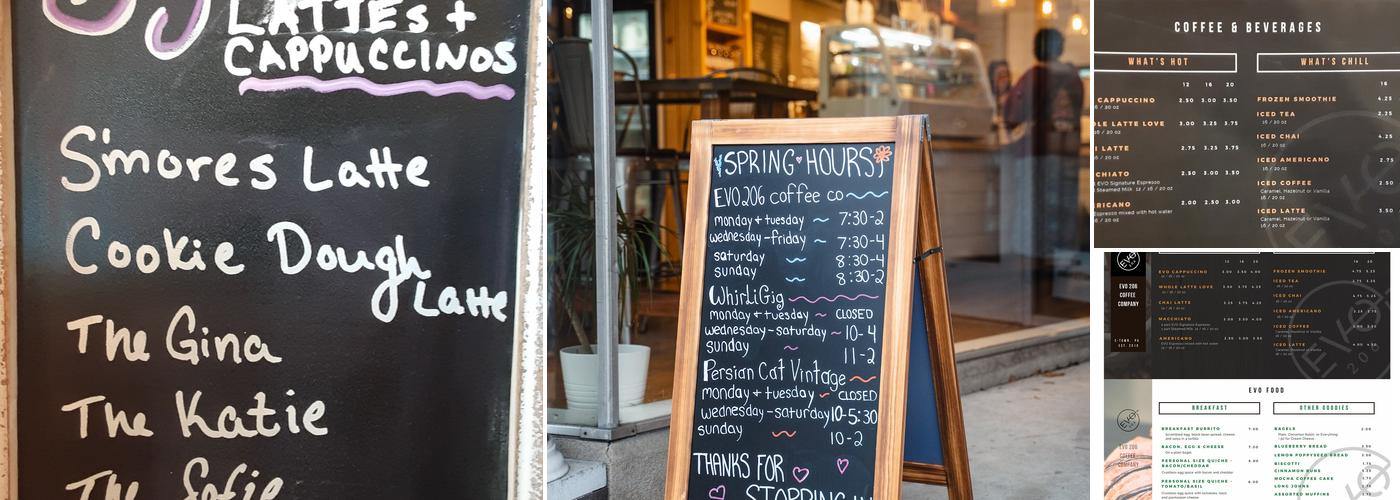 LATTEs +
CAPPUCCINOS
S'mores Latte
Cookie Dough
Latte
The Gina
The Katie
The Sofie
SPRING HOURS
EVO.206 coffee co
monday + tuesday ~ 7:30-2
wednesday-friday ~ 7:30-4
saturday ~ 8:30-4
sunday ~ 8:30-2
WhirliGig
monday + tuesday ~ CLOSED
wednesday-saturday ~ 10-4
sunday ~ 11-2
Persian Cat Vintage
monday + tuesday ~ CLOSED
wednesday-saturday 10-5:30
sunday ~ 10-2
THANKS FOR
STOPPING IN
COFFEE & BEVERAGES
WHAT'S HOT
12 16 20
CAPPUCCINO 2.50 3.00 3.50
/ 20 oz
OLE LATTE LOVE 3.00 3.25 3.75
/ 20 oz
I LATTE 2.75 3.25 3.75
/ 20 oz
CHIATO 2.50 3.00 3.50
EVO Signature Espresso
Steamed Milk 12 / 16 / 20 oz
RICANO 2.00 2.50 3.00
Espresso mixed with hot water
/ 20 oz
WHAT'S CHILL
16
FROZEN SMOOTHIE 4.25
ICED TEA 2.75
16 / 20 oz
ICED CHAI 4.25
16 / 20 oz
ICED AMERICANO 2.75
16 / 20 oz
ICED COFFEE 2.50
Caramel, Hazelnut or Vanilla
16 / 20 oz
ICED LATTE 3.50
Caramel, Hazelnut or Vanilla
16 / 20 oz
EVO
EVO 206
COFFEE
COMPANY
E-TOWN, PA
EST. 2018
12 16 20
EVO CAPPUCCINO
WHOLE LATTE LOVE
CHAI LATTE
MACCHIATO
AMERICANO
FROZEN SMOOTHIE
ICED TEA
ICED CHAI
ICED AMERICANO
ICED COFFEE
Caramel, Hazelnut or Vanilla
ICED LATTE
Caramel, Hazelnut or Vanilla
EVO FOOD
EVO 206
COFFEE
COMPANY
BREAKFAST
BREAKFAST BURRITO 7.00
BACON, EGG & CHEESE 7.00
On a plain bagel
PERSONAL SIZE QUICHE -
BACON/CHEDDAR
PERSONAL SIZE QUICHE -
TOMATO/BASIL
OTHER GOODIES
BAGELS
BLUEBERRY BREAD
LEMON POPPYSEED BREAD
BISCOTTI
CINNAMON BUNS
MOCHA COFFEE CAKE
LONG JOHNS
ASSORTED MUFFINS